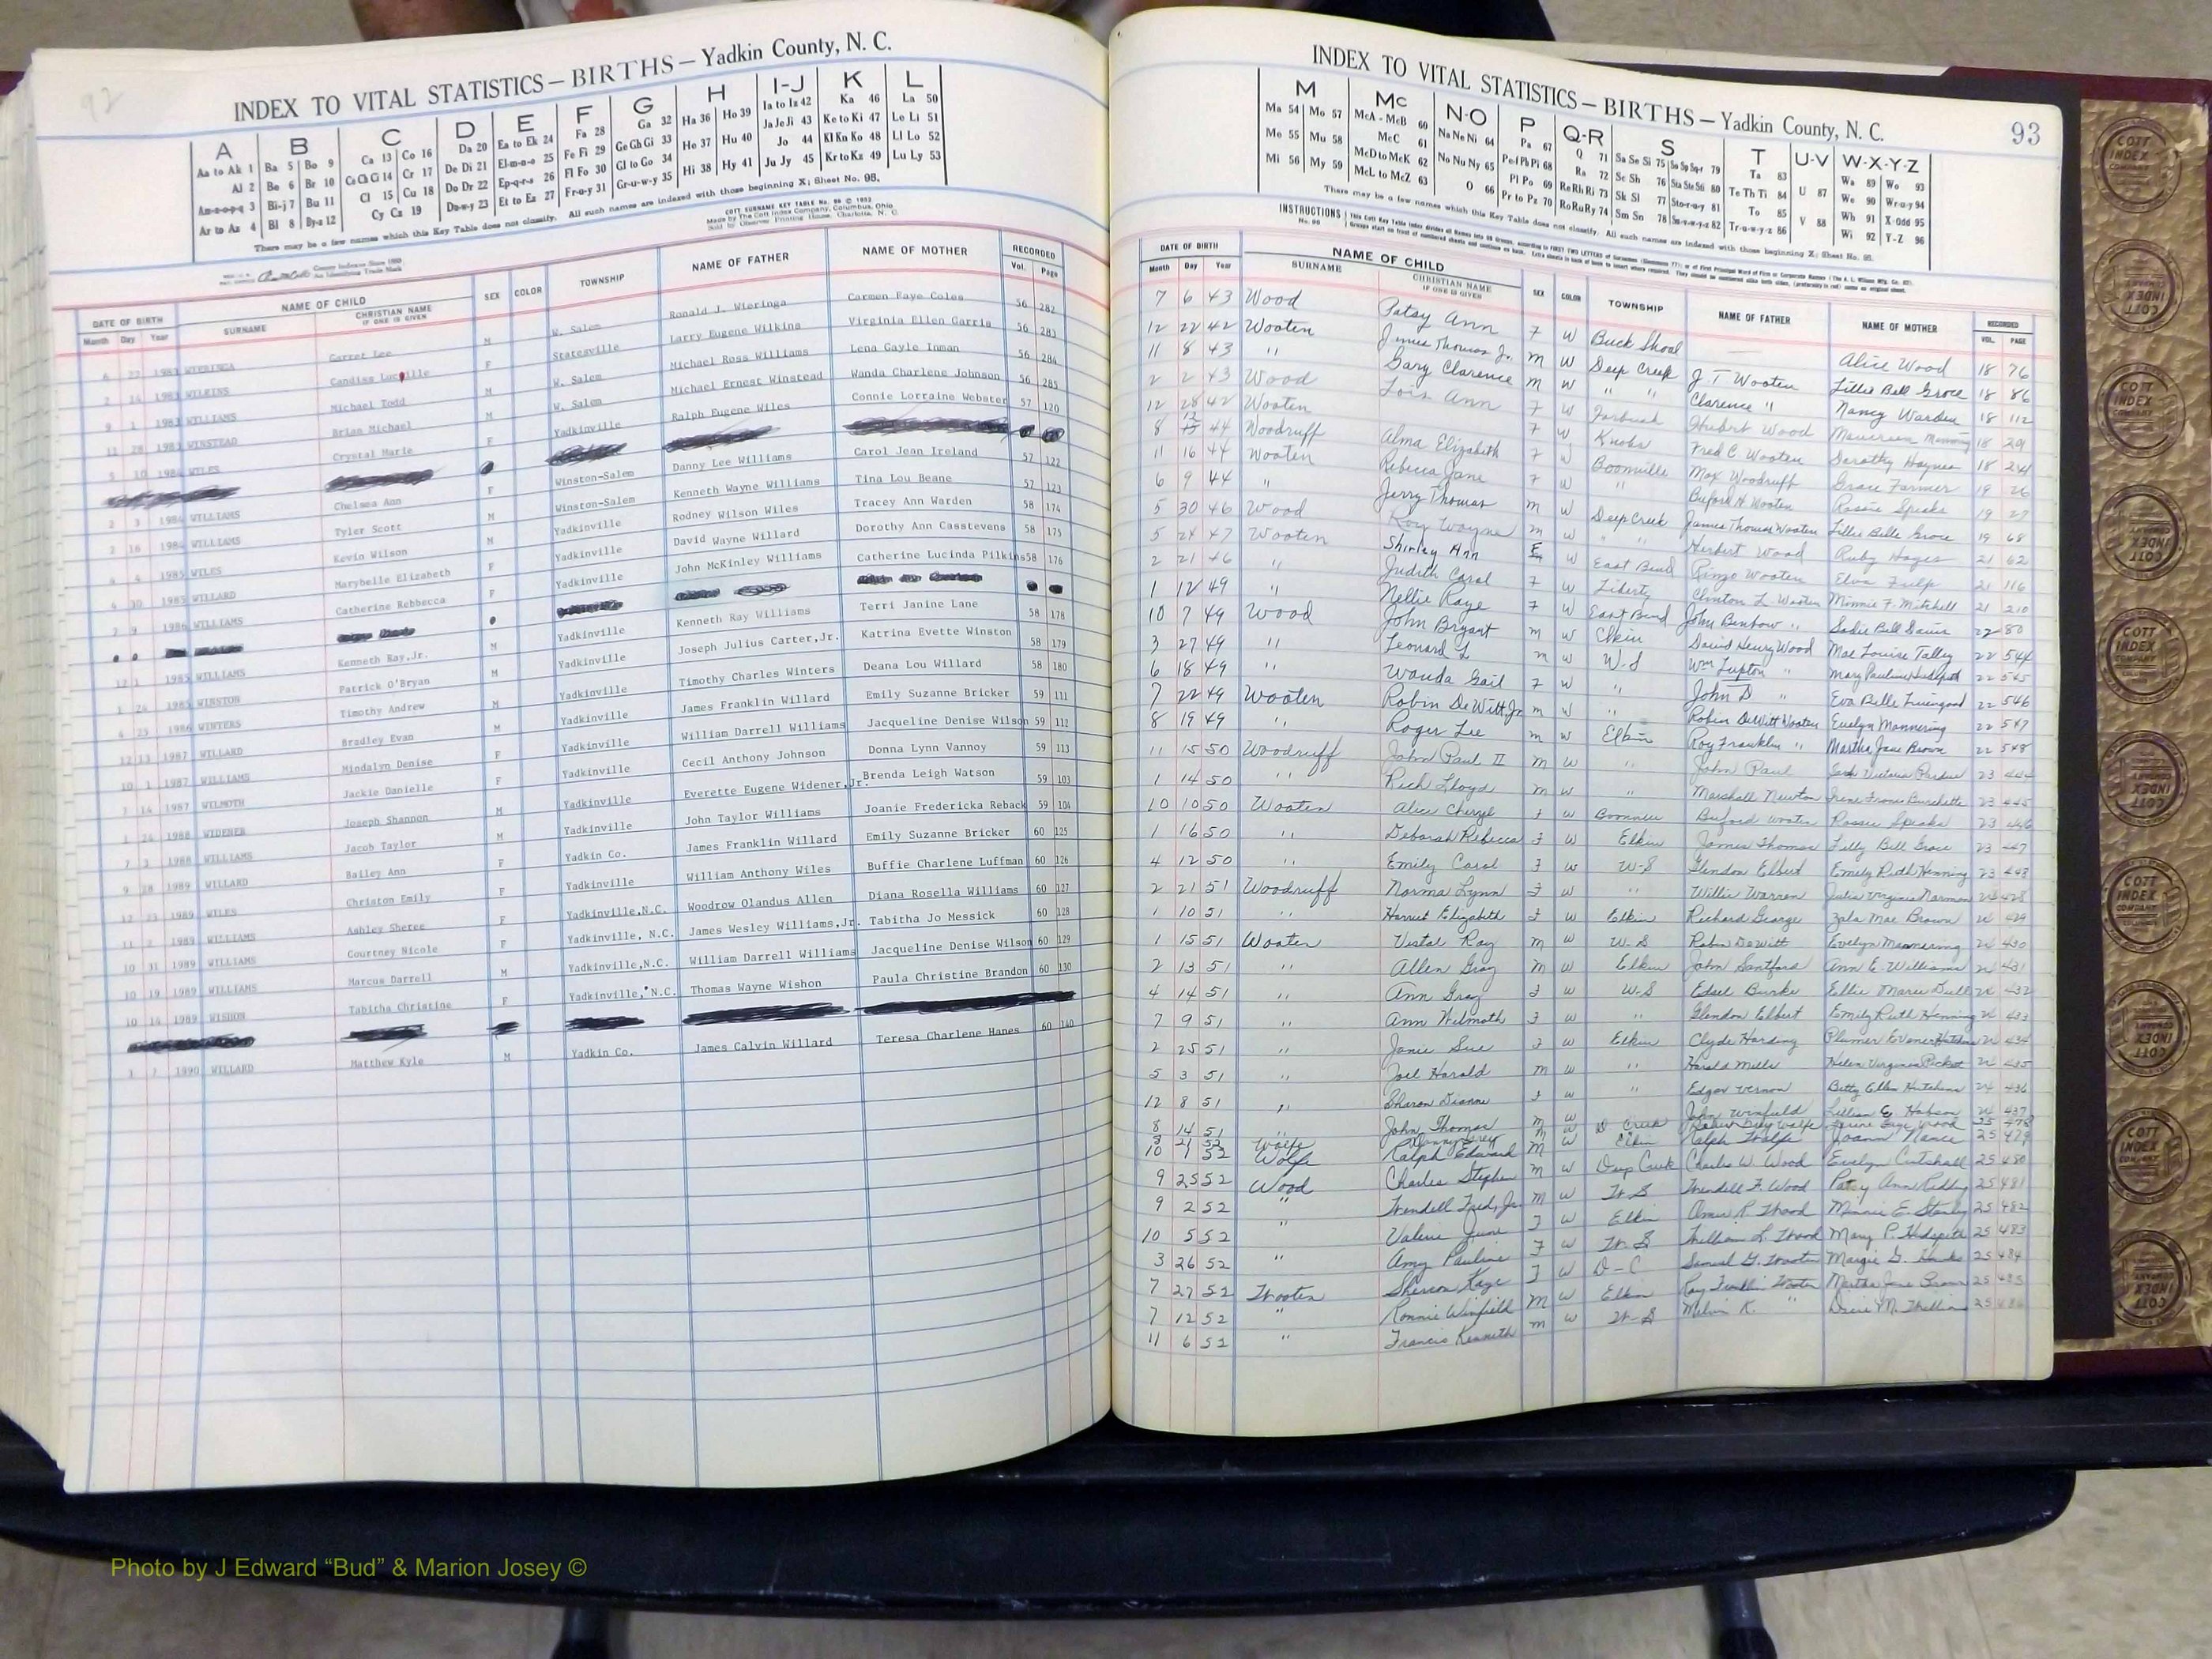 92
INDEX TO VITAL STATISTICS — BIRTHS — Yadkin County, N. C.
A B C D E F G H I-J K L
Aa to Ak 1 Ba 5 Bo 9 Ca 13 Co 16 Da 20 Ea to Ek 24 Fa 28 Ga 32 Ha 36 Ho 39 Ia to Iz 42 Ka 46 La 50
Al 2 Be 6 Br 10 Ce Ch Ci 14 Cr 17 De Di 21 El-m-n-o 25 Fe Fi 29 Ge Gh Gi 33 He 37 Hu 40 Ja Je Ji 43 Ke to Ki 47 Le Li 51
Am-n-o-p-q 3 Bi-j 7 Bu 11 Cl 15 Cu 18 Do Dr 22 Ep-q-r-s 26 Fl Fo 30 Gl to Go 34 Hi 38 Hy 41 Jo 44 Kl Kn Ko 48 Ll Lo 52
Ar to Az 4 Bl 8 By-z 12 Cy Cz 19 Du-w-y 23 Et to Ez 27 Fr-u-y 31 Gr-u-w-y 35 Ju Jy 45 Kr to Kz 49 Lu Ly 53
There may be a few names which this Key Table does not classify. All such names are indexed with those beginning X; Sheet No. 95.
DATE OF BIRTH NAME OF CHILD SEX COLOR TOWNSHIP NAME OF FATHER NAME OF MOTHER RECORDED
Month Day Year SURNAME CHRISTIAN NAME IF ONE IS GIVEN Vol. Page
6 22 1983 WIERINGA Garret Lee M W. Salem Ronald J. Wieringa Carmen Faye Coles 56 282
2 14 1983 WILKINS Candise Lucille F Statesville Larry Eugene Wilkins Virginia Ellen Garris 56 283
9 1 1983 WILLIAMS Michael Todd M W. Salem Michael Ross Williams Lena Gayle Inman 56 284
11 28 1983 WINSTEAD Brian Michael M W. Salem Michael Ernest Winstead Wanda Charlene Johnson 56 285
5 10 1984 WILES Crystal Marie F Yadkinville Ralph Eugene Wiles Connie Lorraine Webster 57 120
2 3 1984 WILLIAMS Chelsea Ann F Winston-Salem Danny Lee Williams Carol Jean Ireland 57 122
2 16 1984 WILLIAMS Tyler Scott M Winston-Salem Kenneth Wayne Williams Tina Lou Beane 57 123
4 4 1985 WILES Kevin Wilson M Yadkinville Rodney Wilson Wiles Tracey Ann Warden 58 174
4 30 1985 WILLARD Marybelle Elizabeth F Yadkinville David Wayne Willard Dorothy Ann Casstevens 58 175
2 9 1986 WILLIAMS Catherine Rebbecca F Yadkinville John McKinley Williams Catherine Lucinda Pilkins 58 176
12 1 1985 WILLIAMS Kenneth Ray,Jr. M Yadkinville Kenneth Ray Williams Terri Janine Lane 58 178
1 24 1985 WINSTON Patrick O'Bryan M Yadkinville Joseph Julius Carter,Jr. Katrina Evette Winston 58 179
4 25 1986 WINTERS Timothy Andrew M Yadkinville Timothy Charles Winters Deana Lou Willard 58 180
12 13 1987 WILLARD Bradley Evan M Yadkinville James Franklin Willard Emily Suzanne Bricker 59 111
10 1 1987 WILLIAMS Mindalyn Denise F Yadkinville William Darrell Williams Jacqueline Denise Wilson 59 112
7 14 1987 WILMOTH Jackie Danielle F Yadkinville Cecil Anthony Johnson Donna Lynn Vannoy 59 113
1 24 1988 WIDENER Joseph Shannon M Yadkinville Everette Eugene Widener,Jr. Brenda Leigh Watson 59 103
7 3 1988 WILLIAMS Jacob Taylor M Yadkinville John Taylor Williams Joanie Fredericka Reback 59 104
9 28 1989 WILLARD Bailey Ann F Yadkin Co. James Franklin Willard Emily Suzanne Bricker 60 125
12 23 1989 WILES Christon Emily F Yadkinville William Anthony Wiles Buffie Charlene Luffman 60 126
11 2 1989 WILLIAMS Ashley Sheree F Yadkinville,N.C. Woodrow Olandus Allen Diana Rosella Williams 60 127
10 31 1989 WILLIAMS Courtney Nicole F Yadkinville, N.C. James Wesley Williams,Jr. Tabitha Jo Messick 60 128
10 19 1989 WILLIAMS Marcus Darrell M Yadkinville,N.C. William Darrell Williams Jacqueline Denise Wilson 60 129
10 14 1989 WISHON Tabitha Christine F Yadkinville, N.C. Thomas Wayne Wishon Paula Christine Brandon 60 130
1990 WILLARD Matthew Kyle M Yadkin Co. James Calvin Willard Teresa Charlene Hanes 60 140
INDEX TO VITAL STATISTICS — BIRTHS — Yadkin County, N. C. 93
M Mc N-O P Q-R S T U-V W-X-Y-Z
Ma 54 Mo 57 McA - McB 60 Na Ne Ni 64 Pa 67 Q 71 Sa Se Si 75 So Sp Sq-r 79 Ta 83 U 87 Wa 89 Wo 93
Me 55 Mu 58 McC 61 No Nu Ny 65 Pe Pf Ph Pi 68 Ra 72 Sc Sh 76 Sta Ste Sti 80 Te Th Ti 84 V 88 We 90 Wr-u-y 94
Mi 56 My 59 McD to McK 62 O 66 Pl Po 69 Re Rh Ri 73 Sk Sl 77 Sto-r-u-y 81 To 85 Wh 91 X-Odd 95
McL to McZ 63 Pr to Pz 70 Ro Ru Ry 74 Sm Sn 78 Su-v-w-y-z 82 Tr-u-w-y-z 86 Wi 92 Y-Z 96
There may be a few names which this Key Table does not classify. All such names are indexed with those beginning X; Sheet No. 95.
INSTRUCTIONS
DATE OF BIRTH NAME OF CHILD SEX COLOR TOWNSHIP NAME OF FATHER NAME OF MOTHER RECORDED
Month Day Year SURNAME CHRISTIAN NAME IF ONE IS GIVEN VOL. PAGE
7 6 43 Wood Patsy Ann F W Buck Shoal Alice Wood 18 76
12 22 42 Wooten James Thomas Jr. M W Deep Creek J. T. Wooten Lillie Bell Groce 18 86
11 8 43 " Gary Clarence M W " " Clarence " Nancy Warden 18 112
2 2 43 Wood Lois Ann F W Forbush Hubert Wood 18 201
12 28 42 Wooten F W Knobs Fred C. Wooten Dorothy Haynes 18
8 44 Woodruff Alma Elizabeth F W Boonville Max Woodruff Grace Farmer 19 26
11 16 44 Wooten Rebecca Jane F W " Buford H Wooten Rossie Speaks 19 27
6 9 44 " Jerry Thomas M W Deep Creek James Thomas Wooten Lillie Belle Groce 19 68
5 30 46 Wood Roy Wayne M W " " Herbert Wood Ruby Hayes 21 62
5 24 47 Wooten Shirley Ann F W East Bend Ringo Wooten Elva Fulp 21 116
2 21 46 " Judith Carol F W Liberty Clinton L. Wooten Minnie F. Mitchell 21 210
1 12 49 " Nellie Raye F W East Bend John Benbow " Sadie Bell Davis 22 80
10 7 49 Wood John Bryant M W Elkin David Henry Wood Mae Louise Talley 22 544
3 27 49 " Leonard L M W W-S Wm Lupton " Mary Pauline 22 545
6 18 49 " Wanda Gail F W " John D " Eva Belle Livengood 22 546
7 22 49 Wooten Robin DeWitt Jr M W " Robin DeWitt Wooten Evelyn Mannering 22 547
8 19 49 " Roger Lee M W Elkin Roy Franklin " Martha Jane Brown 22 548
11 15 50 Woodruff John Paul II M W " John Paul Sarah Victoria Pardue 23 444
1 14 50 " Rich Lloyd M W " Marshall Newton Irene Frances Burchette 23 445
10 10 50 Wooten Alice Cheryl F W Boonville Buford Wooten Rossie Speaks 23 446
1 16 50 " Deborah Rebecca F W Elkin James Thomas Lilly Bell Groce 23 447
4 12 50 " Emily Carol F W W-S Glendon Elbert Emily Ruth Henning 23 448
2 21 51 Woodruff Norma Lynn F W " Willie Warren Julia Virginia Norman 24 428
1 10 51 " Harriet Elizabeth F W Elkin Richard George Zala Mae Brown 24 429
1 15 51 Wooten Vestal Ray M W W. S Robin DeWitt Evelyn Mannering 24 430
2 13 51 " Allen Gray M W Elkin John Santford Ann E. Williams 24 431
4 14 51 " Ann Gray F W W-S Edsel Burke Ellie Marie Dull 24 432
7 9 51 " Ann Wilmoth F W " Glendon Elbert Emily Ruth Henning 24 433
2 25 51 " Janie Sue F W Elkin Clyde Harding Plumer 24 434
5 3 51 " Joel Harold M W " Harold Mills Helen Virginia Pickett 24 435
12 8 51 " Sharon Dianne F W " Edgar Vernon Betty Ellen Hutchens 24 436
8 14 51 " John Thomas M W D Creek John Winfield Lillian E. Hobson 24 437
21 52 Wolfe Danny Grey M W Elkin 25 478
10 1 52 Wolfe Ralph Edward M W Ralph Wolfe Joann Nance 25 479
9 25 52 Wood Charles Stephen M W Deep Creek Charles W. Wood Evelyn Cutshall 25 480
9 2 52 " Wendell Fred, Jr. M W W S Wendell F. Wood Patsy Ann 25 481
10 5 52 " Valerie June F W Elkin Wood Minnie E. Stanley 25 482
3 26 52 " Amy Pauline F W W S William L. Wood Mary P. 25 483
7 27 52 Wooten Sharon Kaye F W D-C Samuel G. Wooten Margie G. 25 484
7 12 52 " Ronnie Winfield M W Elkin Roy Franklin Wooten Martha Jane Brown 25 485
11 6 52 " Francis Kenneth M W W-S Melvin K. " 25
COTT INDEX COMPANY
Photo by J Edward “Bud” & Marion Josey ©